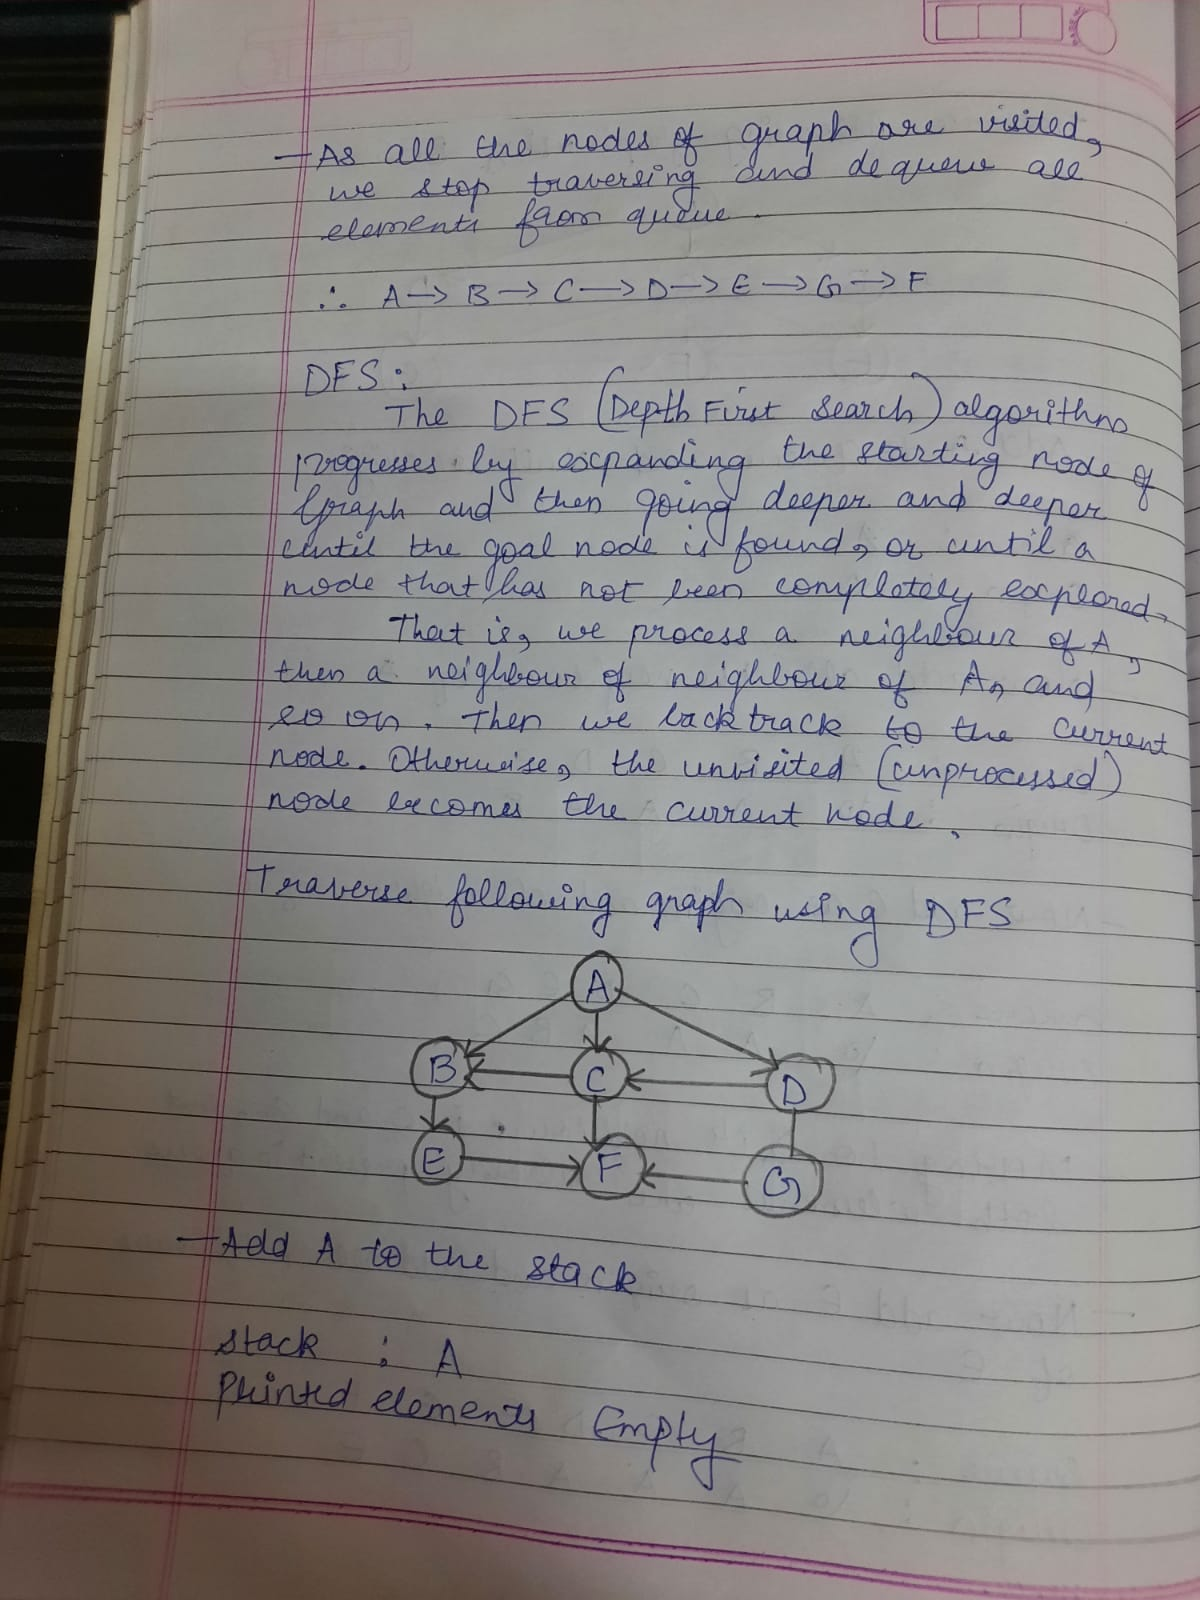 - As all the nodes of graph are visited,
we stop traversing and dequeue all
elements from queue.
∴ A → B → C → D → E → G → F
DFS :
The DFS (Depth First Search) algorithm
progresses by expanding the starting node of
Graph and then going deeper and deeper
until the goal node is found, or until a
node that has not been completely explored.
That is, we process a neighbour of A,
then a neighbour of neighbour of A, and
so on. Then we backtrack to the current
node. Otherwise, the unvisited (unprocessed)
node becomes the current node.
Traverse following graph using DFS
A
B C D
E F G
- Add A to the stack
Stack : A
Printed elements Empty